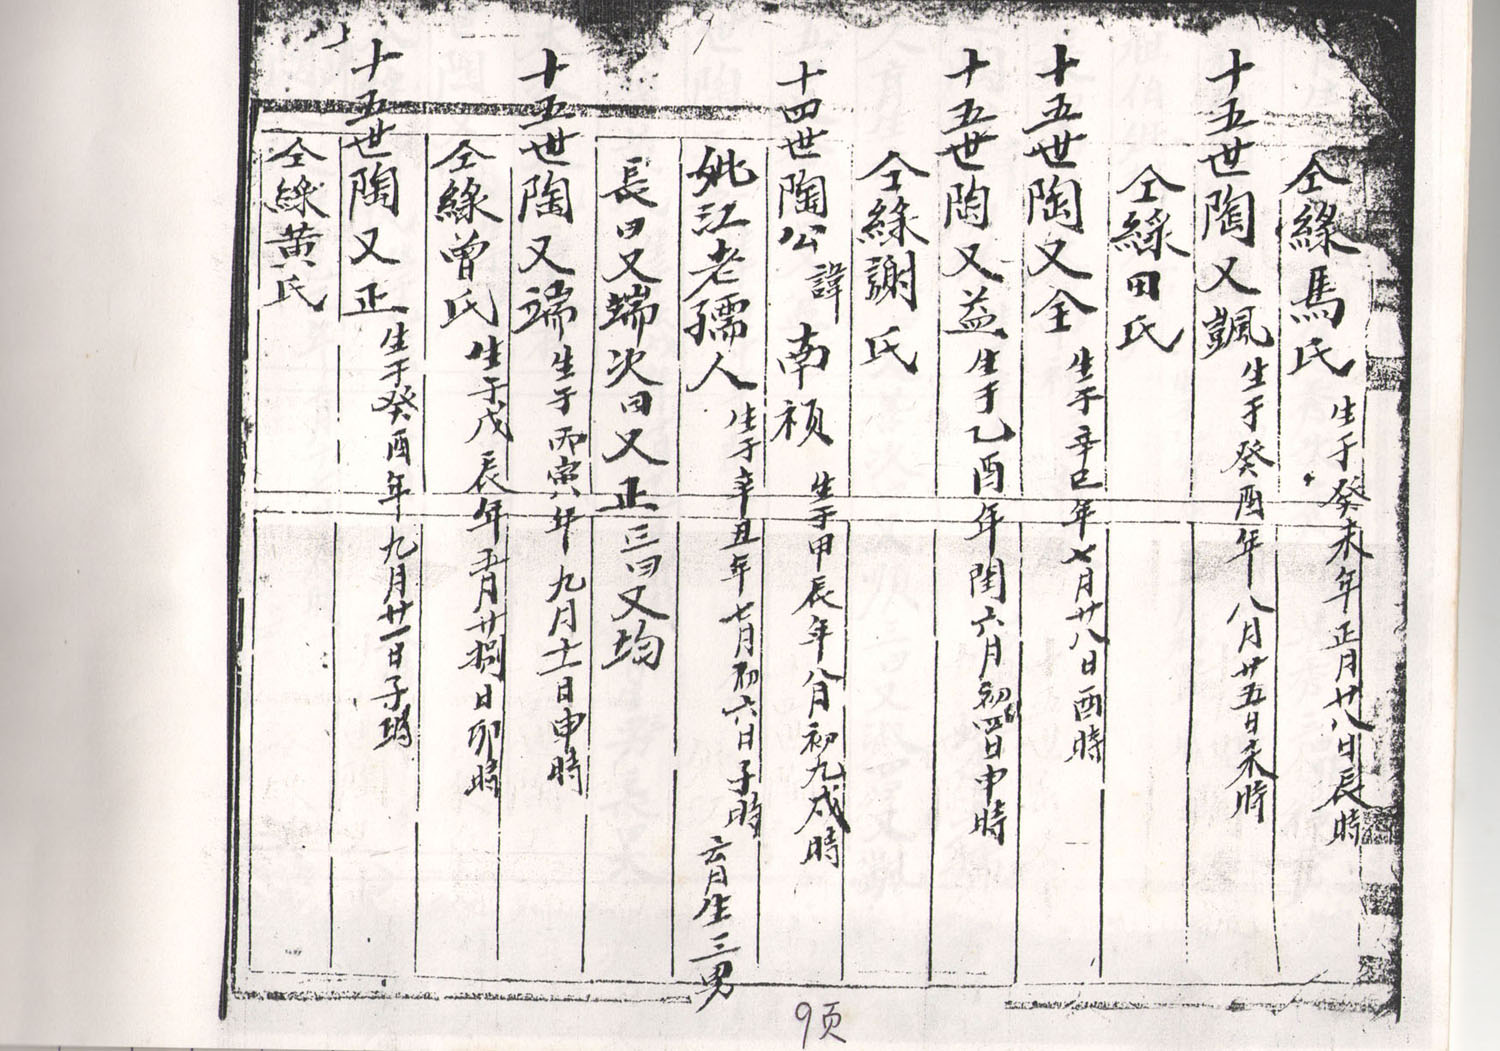 仝緣馬氏 生于癸未年正月廿八日辰時
十五世陶又颽 生于癸酉年八月廿五日未時
仝緣田氏
十五世陶又全 生于辛巳年七月廿八日酉時
十五世陶又益 生于乙酉年閏六月初四日申時
仝緣謝氏
十四世陶公諱南禎 生于甲辰年八月初九戍時
妣江老孺人 生于辛丑年七月初六日子時 育生三男
長曰又端次曰又正三曰又均
十五世陶又端 生于丙寅年九月十一日申時
仝緣曾氏 生于戊辰年五月廿捌日卯時
十五世陶又正 生于癸酉年九月廿一日子時
仝緣黄氏
9页